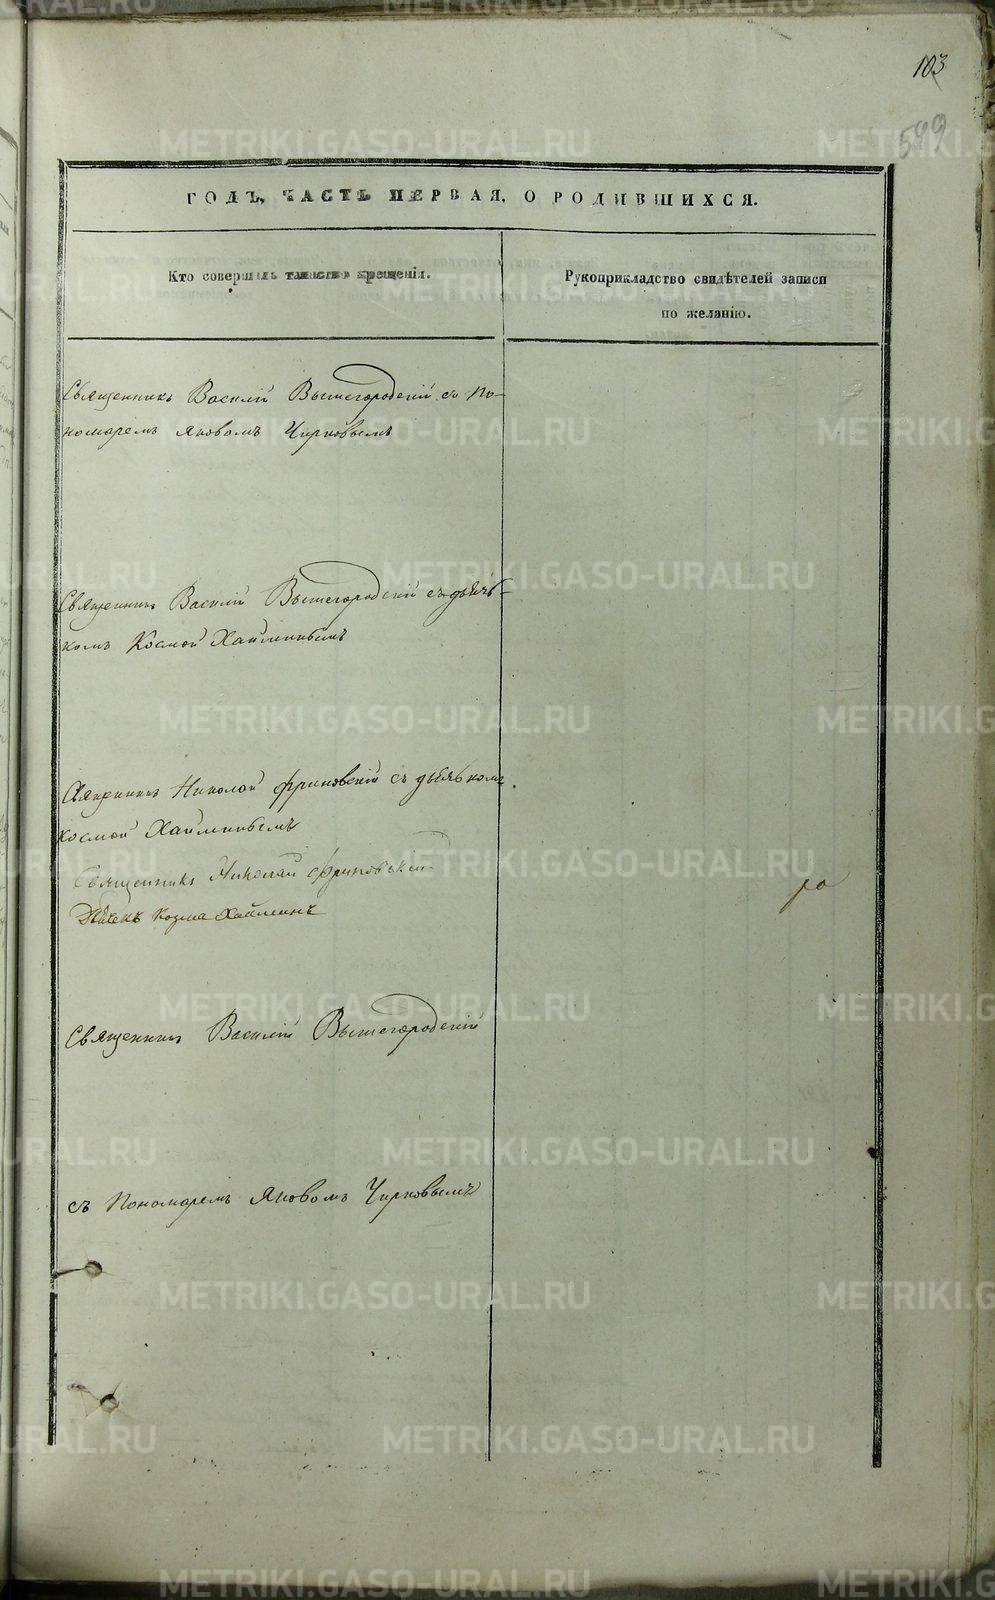 103
599
ГОДЪ, ЧАСТЬ ПЕРВАЯ, О РОДИВШИХСЯ.
Кто совершалъ таинство крещенія.
Рукоприкладство свидѣтелей записи
по желанію.
Священникъ Василій Вышегородскій съ По-
номаремъ Яковомъ Чирковымъ
Священникъ Василій Вышегородскій съ дьяч-
комъ Космой Хайминымъ
Священникъ Николай Фриновскій съ дьячкомъ
Космой Хайминымъ
Священникъ Николай Фриновскій
Дьячекъ Козма Хайминъ
Священникъ Василій Вышегородскій
съ Пономаремъ Яковомъ Чирковымъ
METRIKI.GASO-URAL.RU